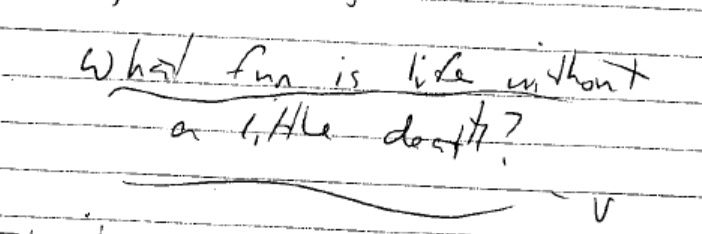 What fun is life without
a little death?